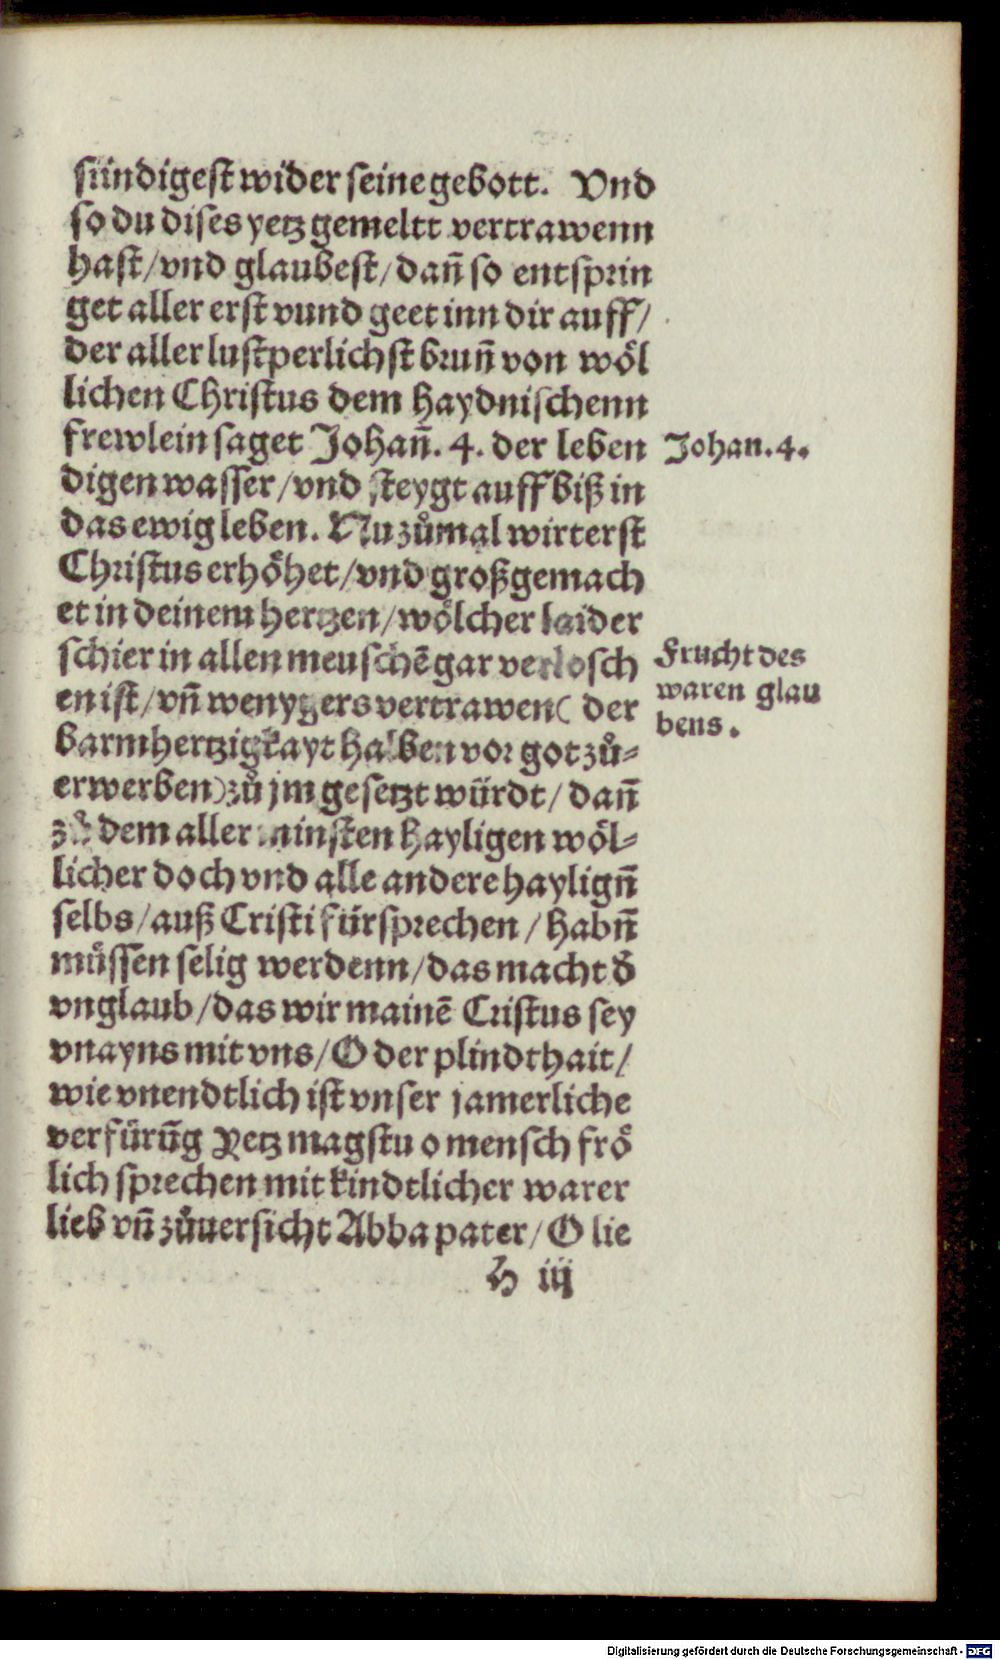 sündigest wider seine gebott. Vnd
so du dises yetz gemeltt vertrawenn
hast/vnd glaubest/dañ so entsprin
get aller erst vund geet inn dir auff/
der aller lustperlichst bruñ von wöl
lichen Christus dem haydnischenn
frewlein saget Johañ. 4. der leben
digen wasser/vnd steygt auff biß in
das ewig leben. Nu zůmal wirt erst
Christus erhöhet/vnd groß gemach
et in deinem hertzen/wölcher laider
schier in allen meuschē gar verlosch
en ist/vñ wenygers vertrawen( der
barmhertzigkayt halben vor got zů=
erwerben) zů jm gesetzt würdt/dañ
zů dem aller minsten hayligen wöl=
licher doch vnd alle andere hayligñ
selbs/auß Cristi fürsprechen/habñ
müssen selig werdenn/das macht d̄
vnglaub/das wir mainē Cristus sey
vnayns mit vns/O der plindthait/
wie vnendtlich ist vnser jamerliche
verfürūg Yetz magstu o mensch frö
lich sprechen mit kindtlicher warer
lieb vñ zůuersicht Abba pater/O lie
h iij
Johan. 4.
Frucht des
waren glau
bens.
Digitalisierung gefördert durch die Deutsche Forschungsgemeinschaft - DFG